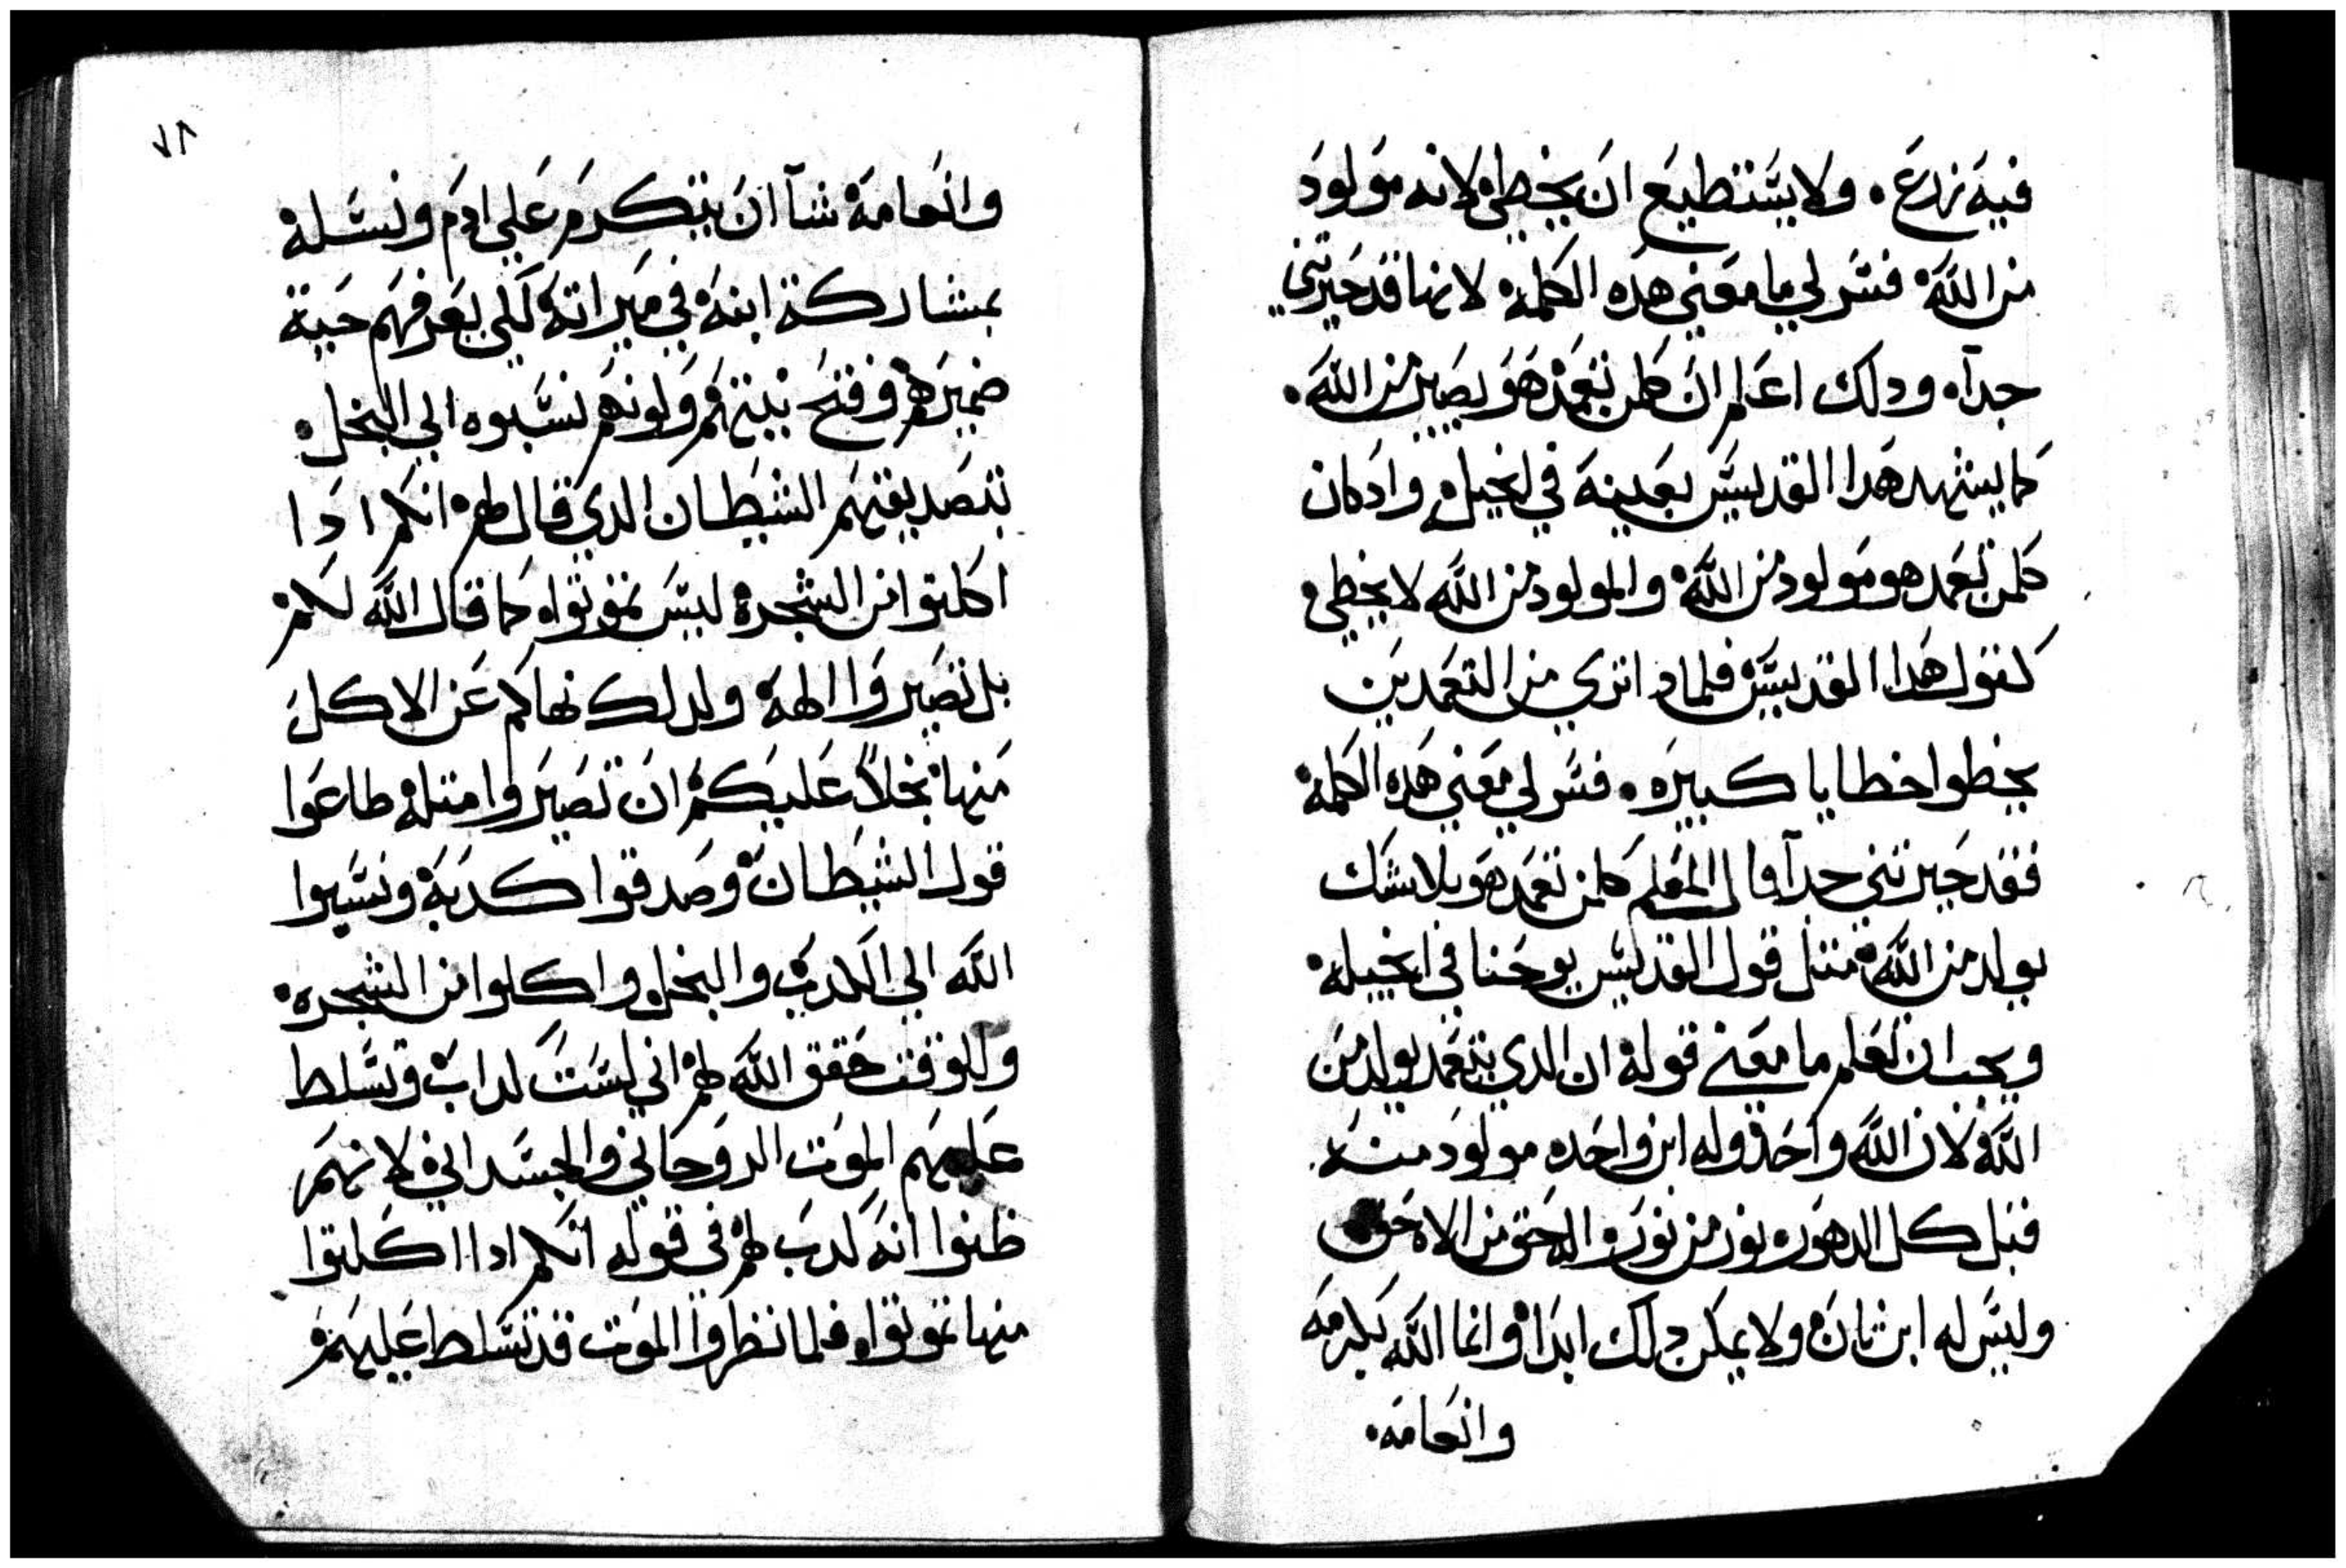 فيه زرع. ولا يستطيع ان يخطى لانه مولود
من الله فسر لي ما معني هده الكلمه لانها قد حيرتني
جدآ. ودلك اعلم ان كلمن تعمد هو يصير من الله.
كما يشهد هدا القديس بعينه في انجيله وادكان
كلمن تعمد هو مولود من الله والمولود من الله لا يخطي
كقول هدا القديس فلمادا نري من المتعمدين
يخطوا خطايا كبيره. فسر لي معني هده الكلمه
فقد حيرتني جدآ قال المعلم كلمن تعمد هو بلا شك
يولد من الله متل قول القديس يوحنا في انجيله
ويجب ان تعلم ما معني قوله ان الدي يتعمد يولد من
الله لان الله واحد وله ابن واحده مولود منه
قبل كل الدهوره نور من نور والاه حق من الاه حق
وليس له ابن تان ولا يمكن دلك ابدا وانما الله بكرمه
وانعامه.
٧١
وانعامه شآ ان يتكرم علي ادم ونسله
بمشاركة ابنه في ميراته لكي يعرفهم خبة
ضميرهم وقبح نيتهم ولونهم نسبوه الي البخل
بتصديقهم الشيطان الدي قال لهم انكم ادا
اكلتوا من الشجره ليس تموتوا كما قال الله لكم
بل تصيروا الهه ولدلك نهاكم عن الاكل
منها بخلاً عليكم ان تصيروا متله طاعوا
قول الشيطان وصدقوا كدبه ونسبوا
الله الي الكدب والبخل واكلوا من الشجره
وللوقت حقق الله لهم اني لست كداب وتسلط
عليهم الموت الروحاني والجسداني لانهم
ظنوا انه كدب لهم في قوله انكم ادا اكلتوا
منها تموتوا. فلما نظروا الموت قد تسلط عليهم